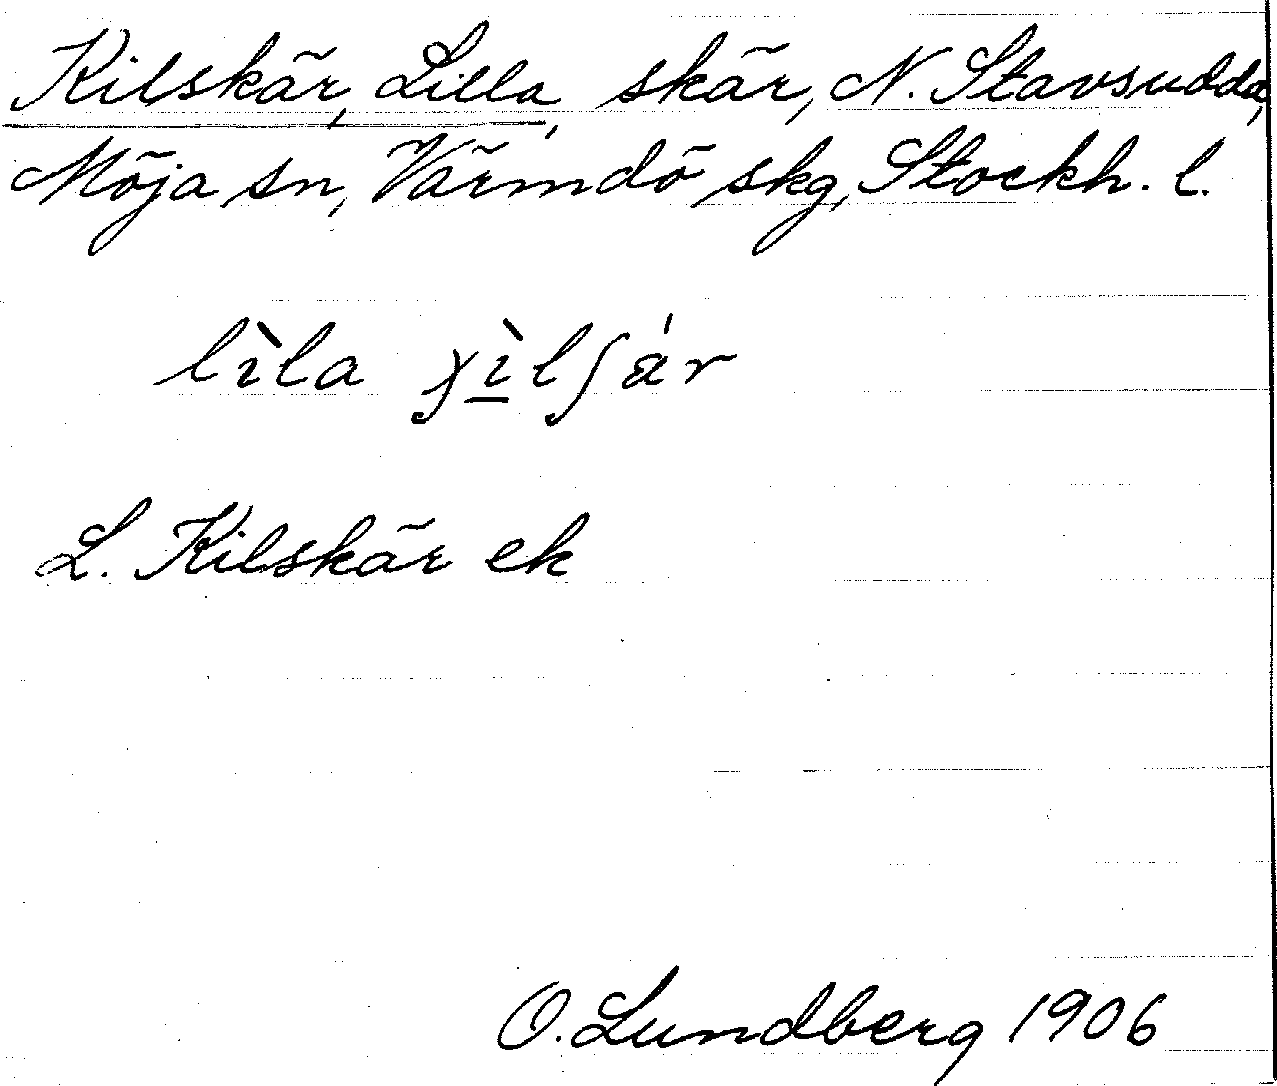 Kilskär, Lilla, skär, N. Stavsudda,
Möja sn, Värmdö skg, Stockh. l.
lìla ɟìlʃár
L. Kilskär ek
O. Lundberg 1906